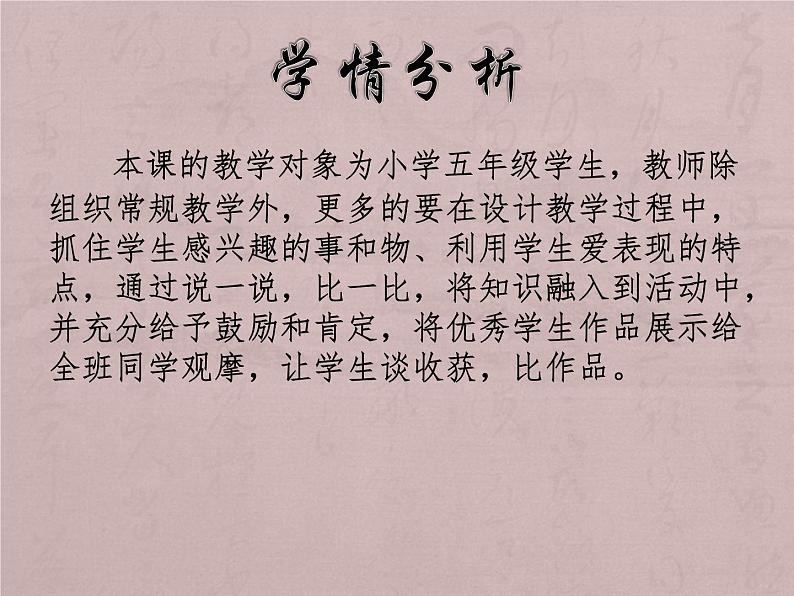 学情分析
本课的教学对象为小学五年级学生，教师除
组织常规教学外，更多的要在设计教学过程中，
抓住学生感兴趣的事和物、利用学生爱表现的特
点，通过说一说，比一比，将知识融入到活动中，
并充分给予鼓励和肯定，将优秀学生作品展示给
全班同学观摩，让学生谈收获，比作品。